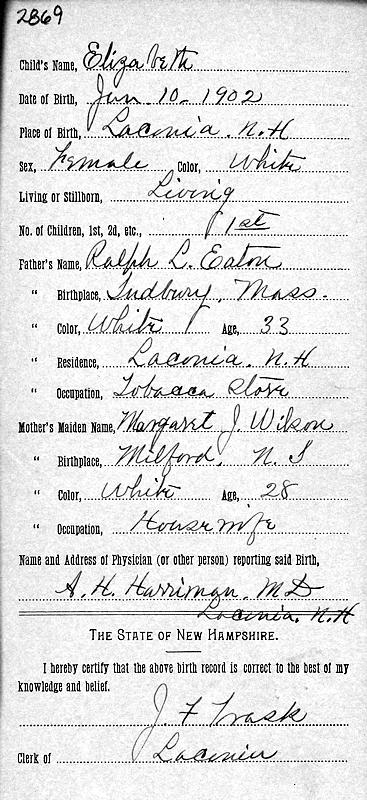 2869
Child's Name, Elizabeth
Date of Birth, Jan. 10 - 1902
Place of Birth, Laconia. N.H
Sex, Female Color, White
Living or Stillborn, Living
No. of Children, 1st, 2d, etc., 1st
Father's Name, Ralph L. Eaton
" Birthplace, Sudbury, Mass.
" Color, White Age, 33
" Residence, Laconia, N.H
" Occupation, Tobacco Store
Mother's Maiden Name, Margaret J. Wilson
" Birthplace, Milford, N. S
" Color, White Age, 28
" Occupation, Housewife
Name and Address of Physician (or other person) reporting said Birth,
A. H. Harriman, MD
Laconia, N.H
THE STATE OF NEW HAMPSHIRE.
I hereby certify that the above birth record is correct to the best of my
knowledge and belief.
J. F Trask
Clerk of Laconia